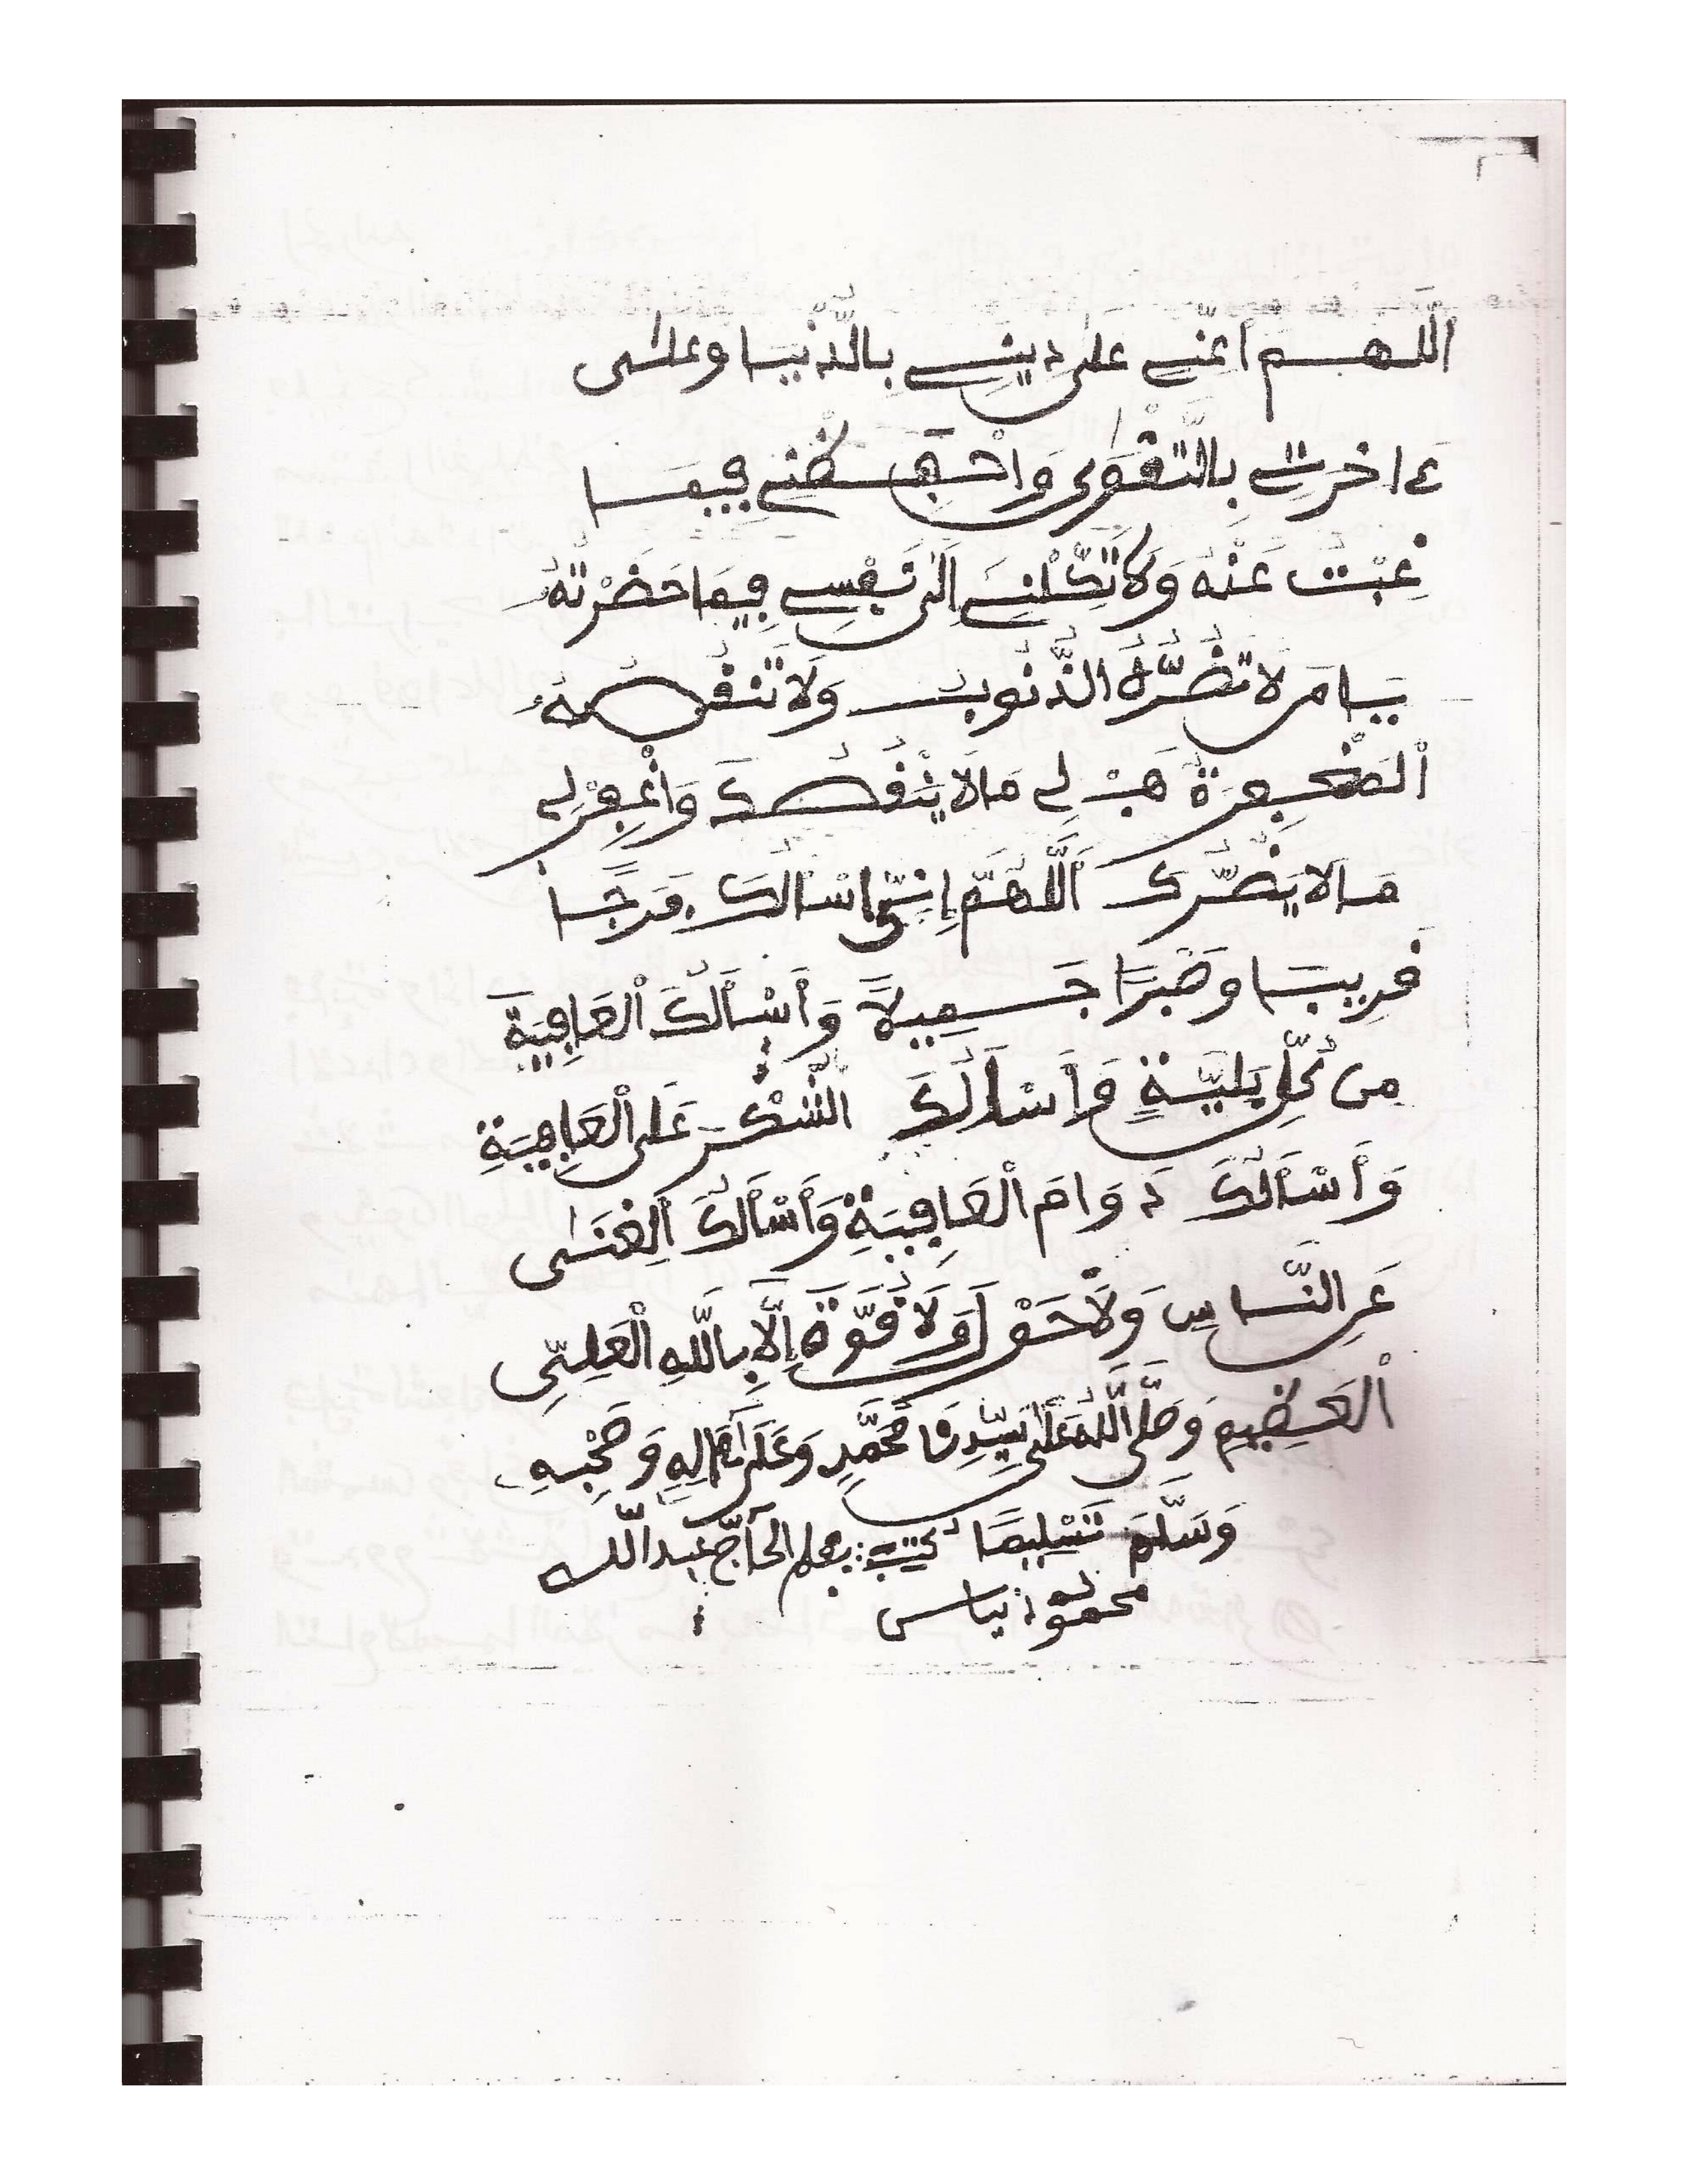 اللهم أعني على ديني بالدنيا وعلى
ءاخرتي بالتقوى واحفظني فيما
غبت عنه ولا تكلني إلى نفسي فيما حضرته
يا من لا تضره الذنوب ولا تنقصه
المغفرة هب لي ما لا ينقصك واغفر لي
ما لا يضرك اللهم إني أسألك فرجا
قريبا وصبرا جميلا وأسألك العافية
من كل بلية وأسألك الشكر على العافية
وأسألك دوام العافية وأسألك الغنى
عن الناس ولا حول ولا قوة إلا بالله العلي
العظيم وصلى الله على سيدنا محمد وعلى ءاله وصحبه
وسلم تسليما كتب: بقلم الحاج عبد الله
محمود نياس